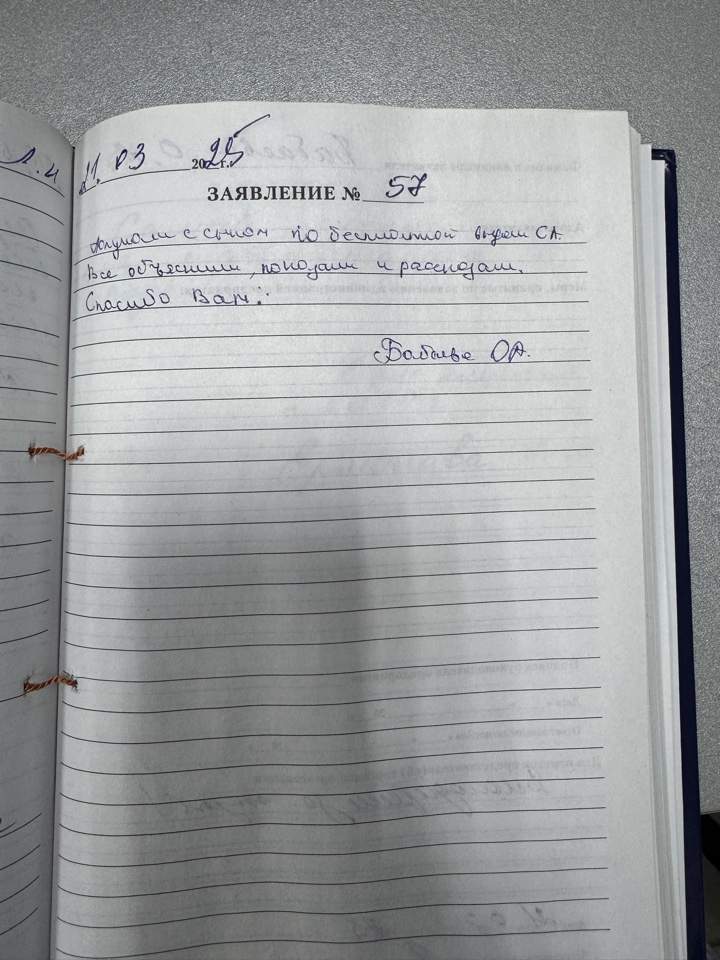 21. 03 2025 г.
ЗАЯВЛЕНИЕ № 57
с сыном по бесплатной выдачи СА.
Все объяснили, показали и рассказали.
Спасибо Вам!
Бабаева О.А.